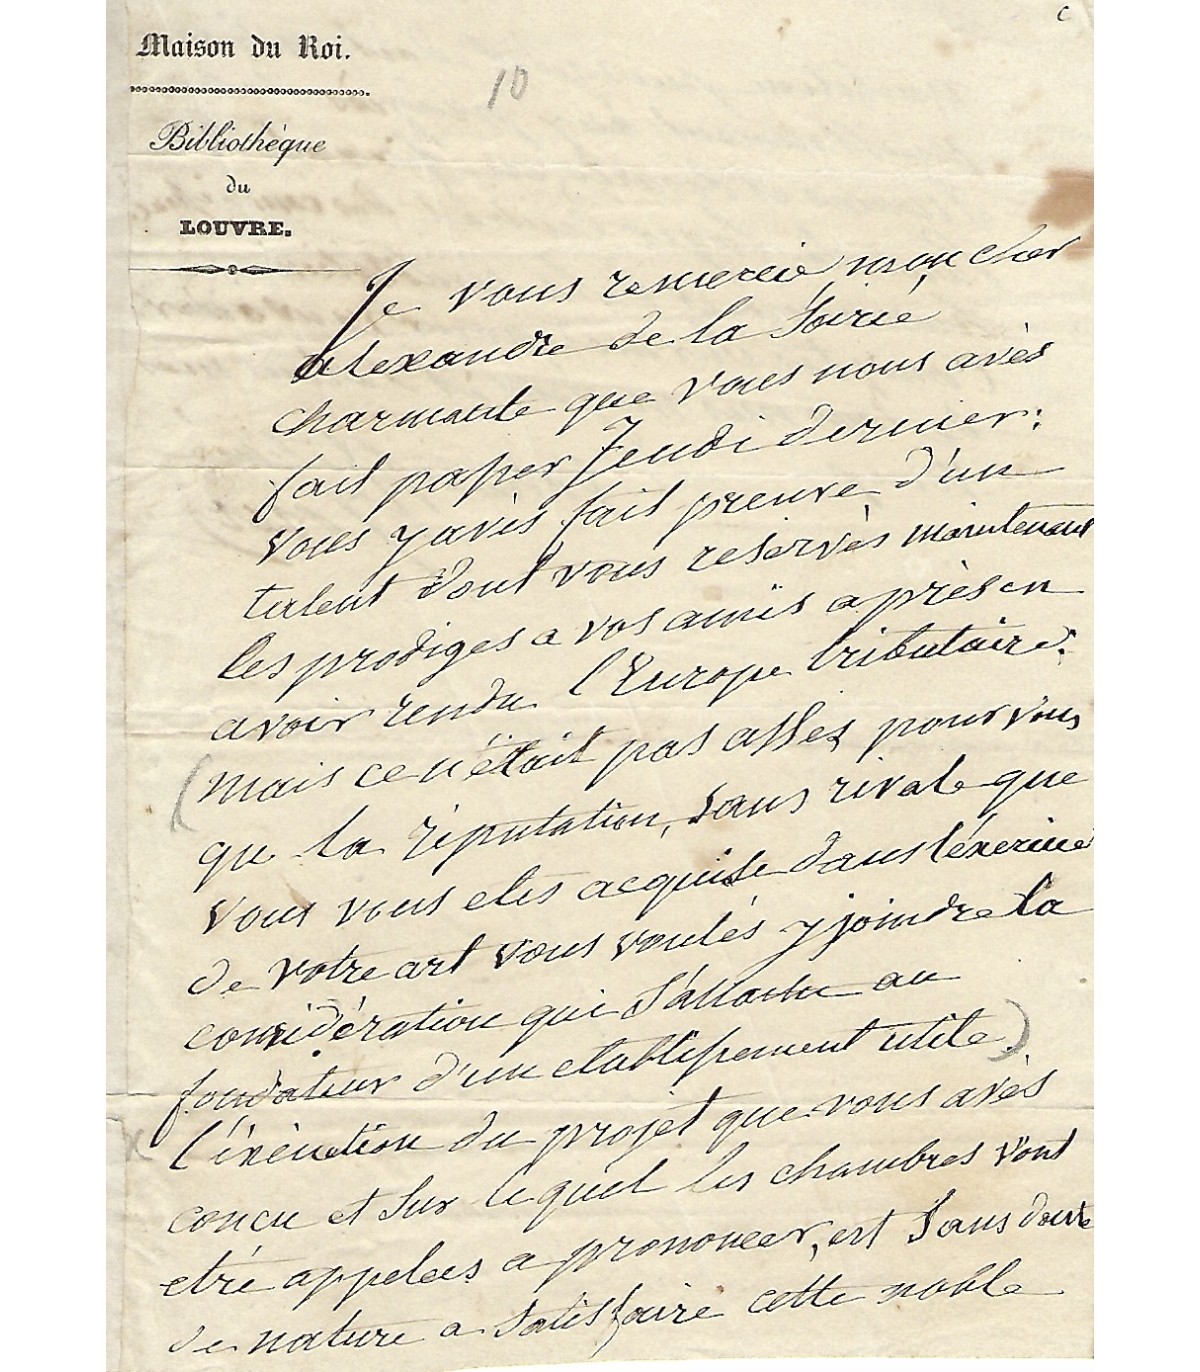 c
Maison du Roi.
10
Bibliothèque
du
LOUVRE.
Je vous remercie mon cher
alexandre de la Soirié
charmante que vous nous avès
fait passer Jeudi dernier:
vous y avès fait preuve d'un
talent dont vous reservès maintenant
les prodiges a vos amis après en
avoir rendu l'Europe tributaire.
(mais ce n'était pas assez pour vous
que la réputation, sans rivale que
vous vous etes acquise dans l'éxercice
de votre art vous voulés y joindre la
considération qui s'attache au
fondateur d'un etablissement utile).
x l'éxécution du projet que vous avès
concu et sur lequel les chambres vont
etré appelees a prononcer, est sans doute
de nature a satisfaire cette noble